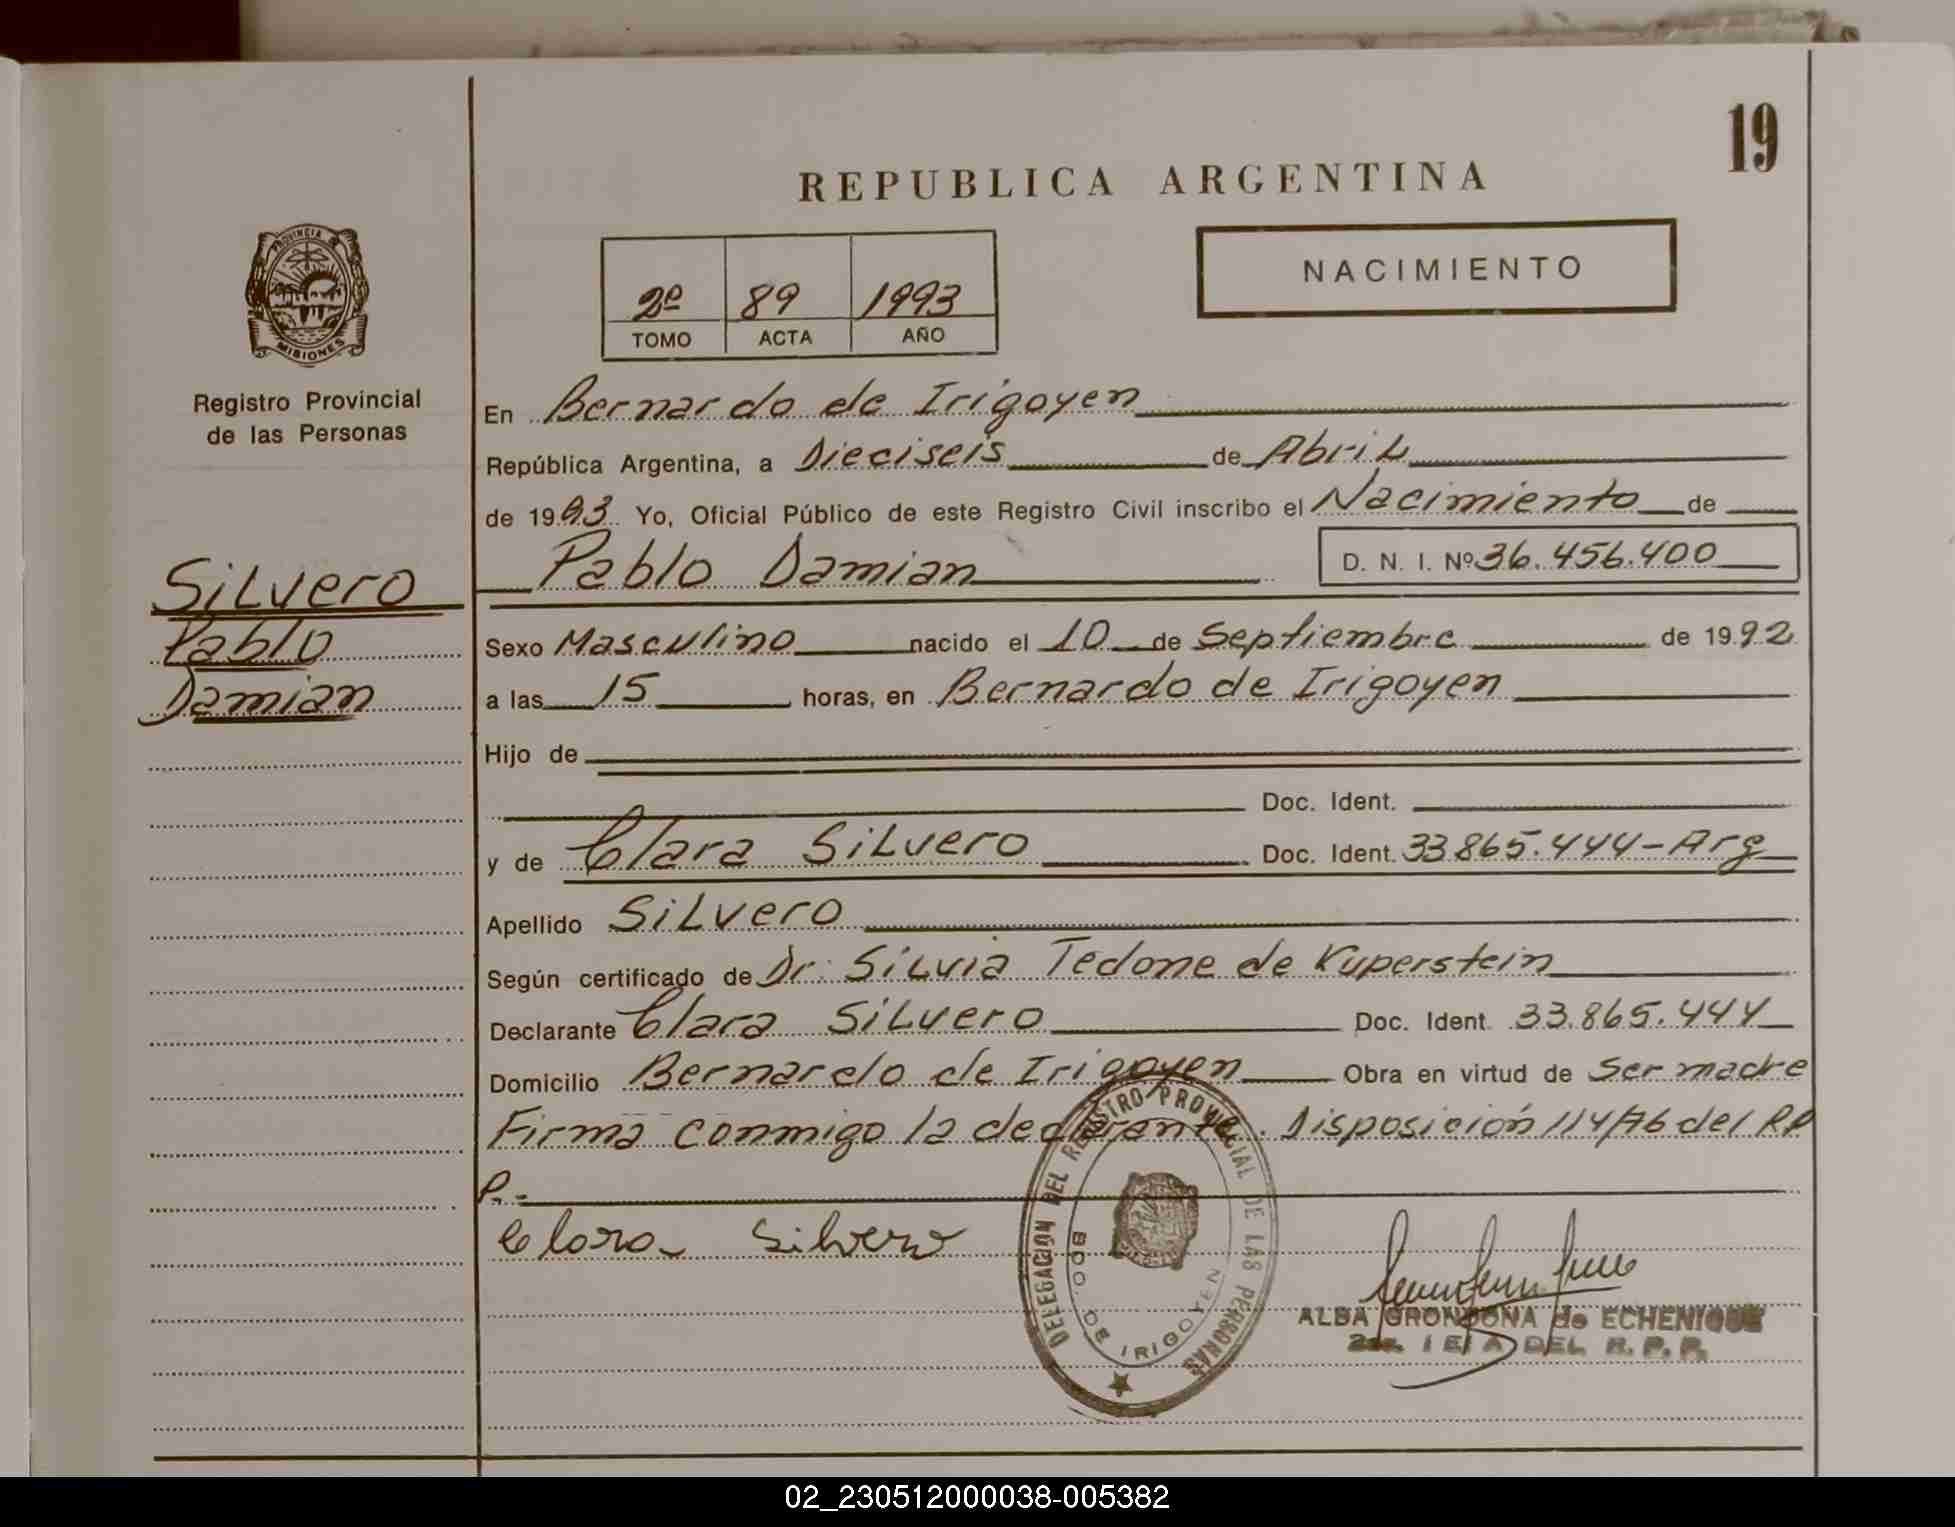 19
REPUBLICA ARGENTINA
PROVINCIA
MISIONES
Registro Provincial
de las Personas
2º 89 1993
TOMO ACTA AÑO
NACIMIENTO
En Bernardo de Irigoyen
República Argentina, a Dieciseis de Abril
de 1993 Yo, Oficial Público de este Registro Civil inscribo el Nacimiento de
Pablo Damian D. N. I. Nº 36.456.400
Silvero
Pablo
Damian
Sexo Masculino nacido el 10 de Septiembre de 1992
a las 15 horas, en Bernardo de Irigoyen
Hijo de
Doc. Ident.
y de Clara Silvero Doc. Ident. 33.865.444-Arg
Apellido Silvero
Según certificado de Dr. Silvia Tedone de Kuperstein
Declarante Clara Silvero Doc. Ident. 33.865.444
Domicilio Bernardo de Irigoyen Obra en virtud de Ser madre
Firma conmigo la declarante. Disposición 114/76 del R.P.
P.-
Clara Silvero
DELEGACION DEL REGISTRO PROVINCIAL DE LAS PERSONAS
BDO. DE IRIGOYEN
ALBA GRONDONA de ECHENIQUE
DEL R. P. P.
02_230512000038-005382